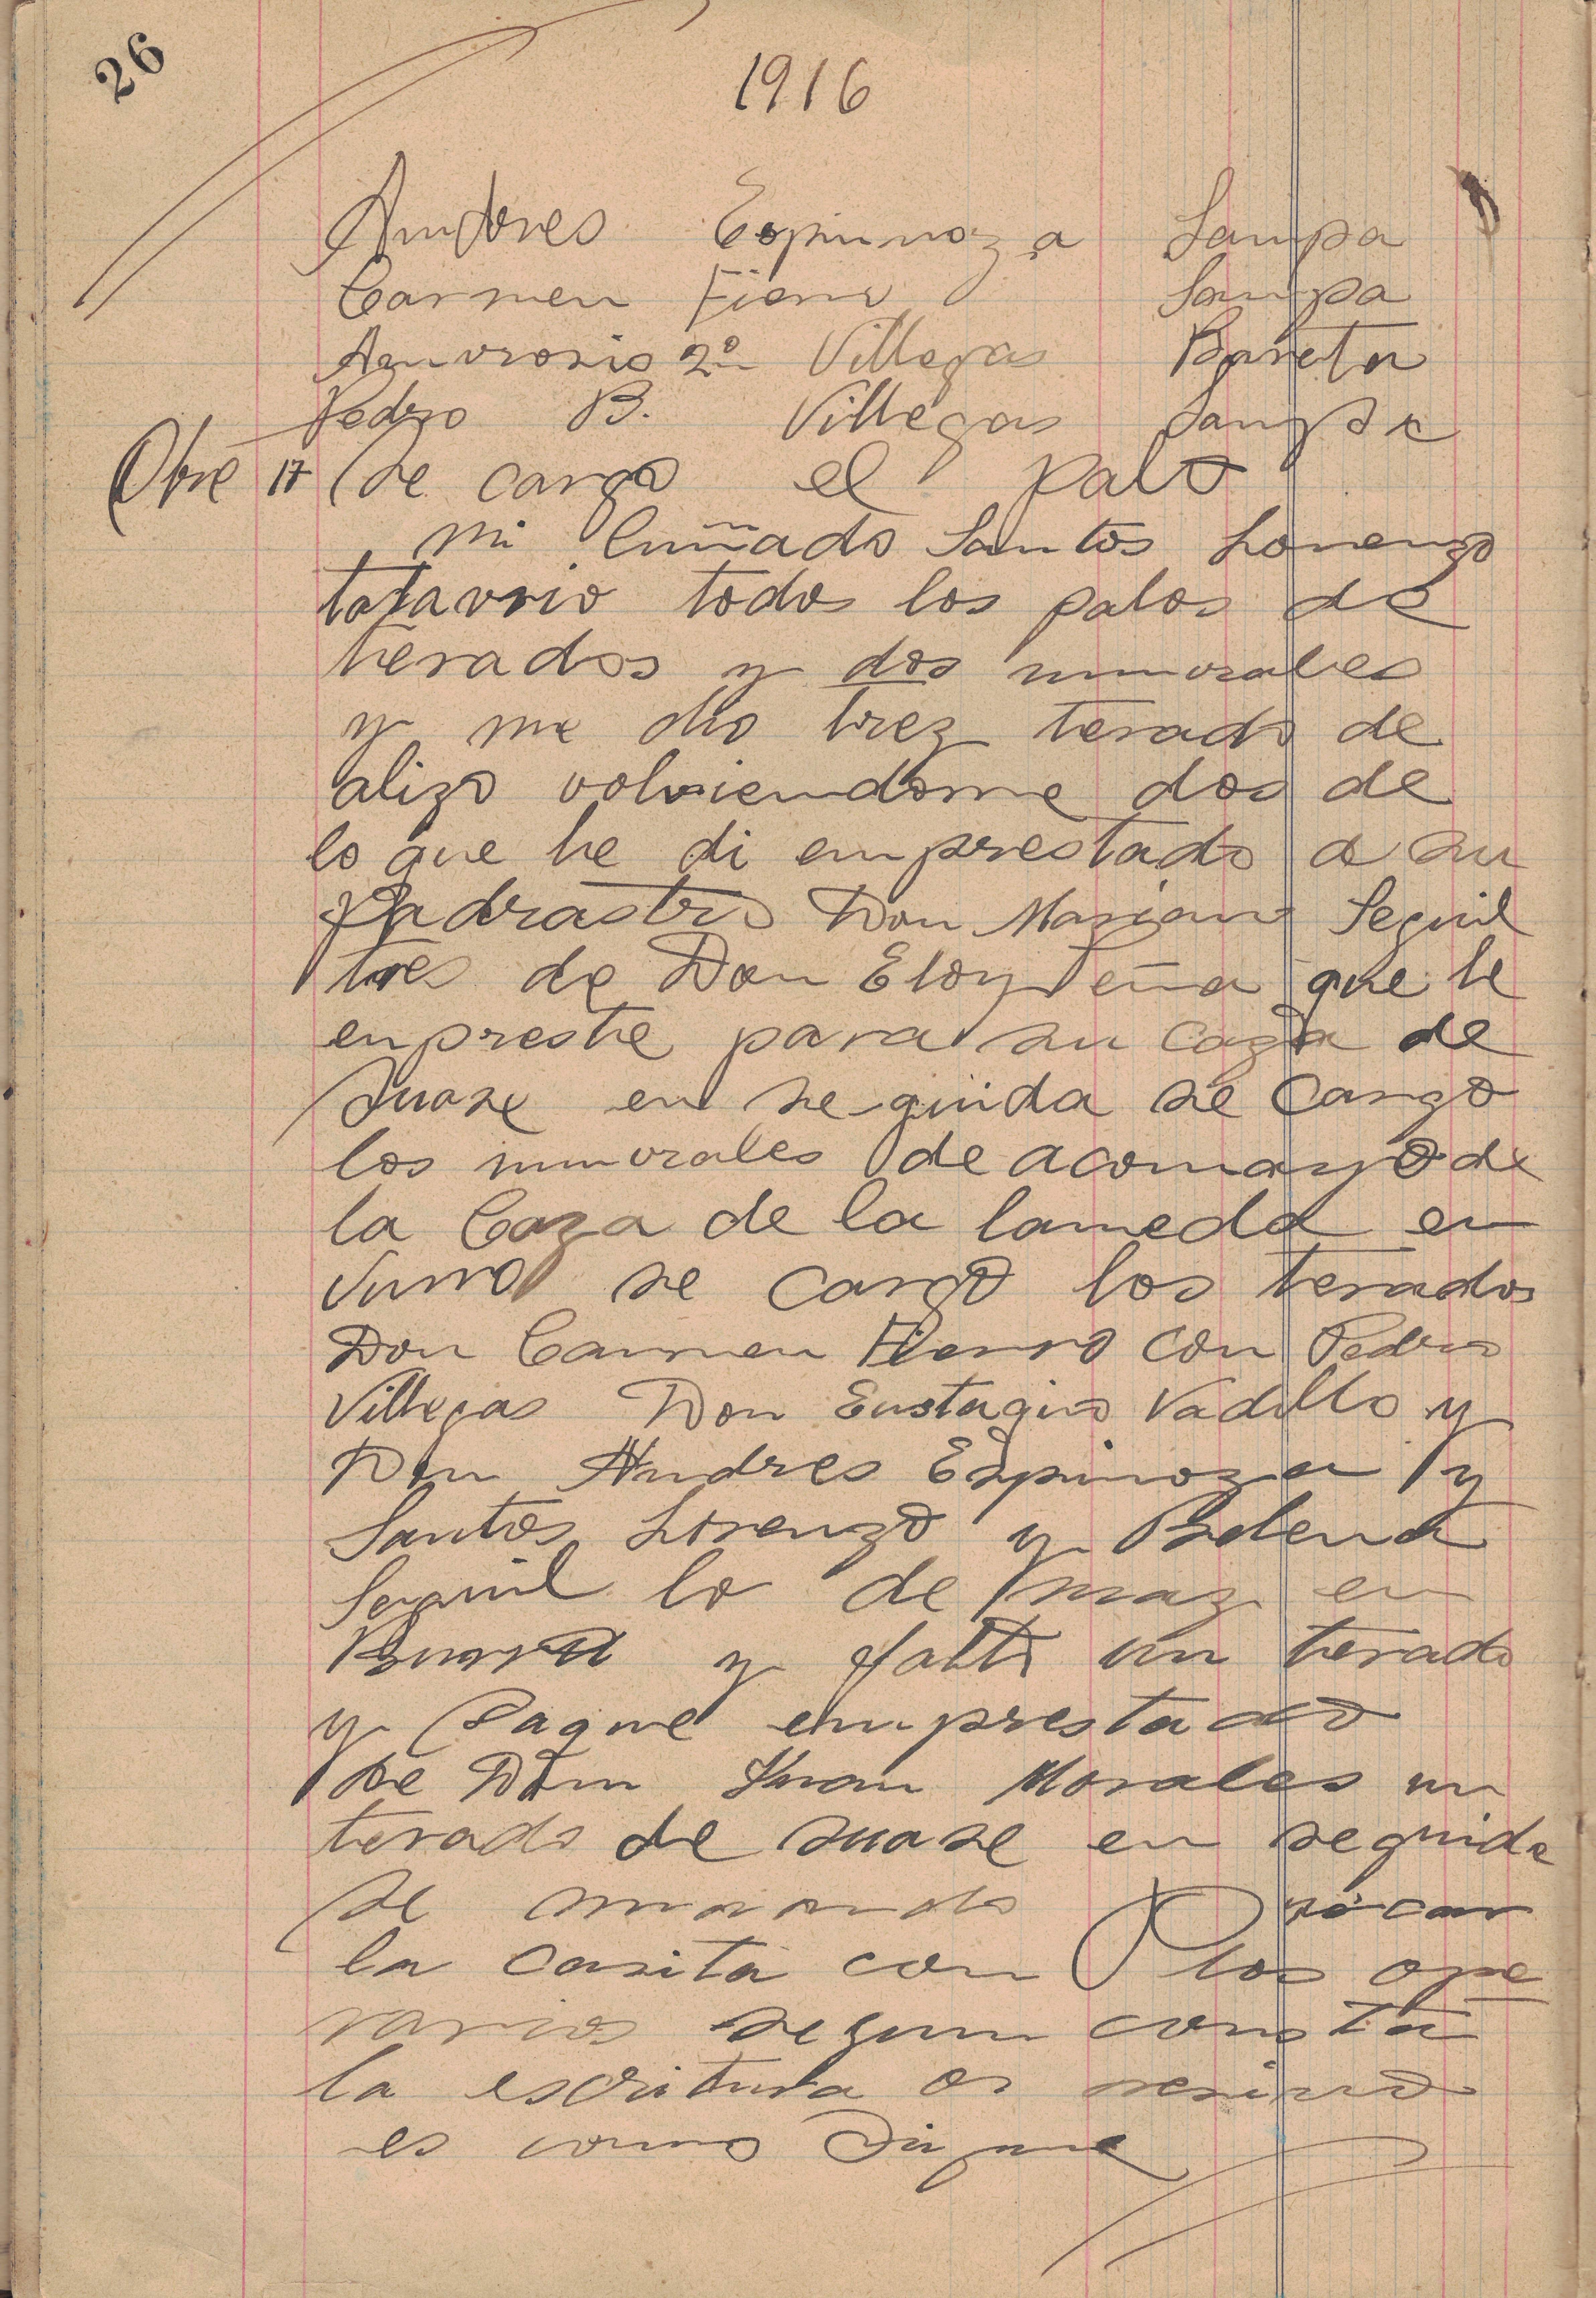 26
1916
Andres Espinoza Lampa
Carmen Fierro Lampa
Amvrosio 2º Villegas Bareta
Pedro B. Villegas Lampa
Obre 17 Se cargo el palo
mi Cuñado Santos Lorenzo
todos los palos de
terados y dos umvrales
y me dio trez terado de
alizo volviendome dos de
lo que he di emprestado a su
Padrastro Don Mariano Seguil
tres de Don Eloy Peña que le
enpreste para su caza de
suase en seguida se cargo
los umvrales de acomayo de
la Caza de la lameda en
se cargo los terados
Don Carmen Fierro con Pedro
Villegas Don Eustaqio Vadillo y
Don Andres Espinoza y
Santos Lorenzo y
Seguil lo de maz en
y falto un terado
y Saque emprestado
de Don Juan Morales un
terado de suase en seguida
se
la casita con los ope
rarios segun consta
la escritura
es como Sigue